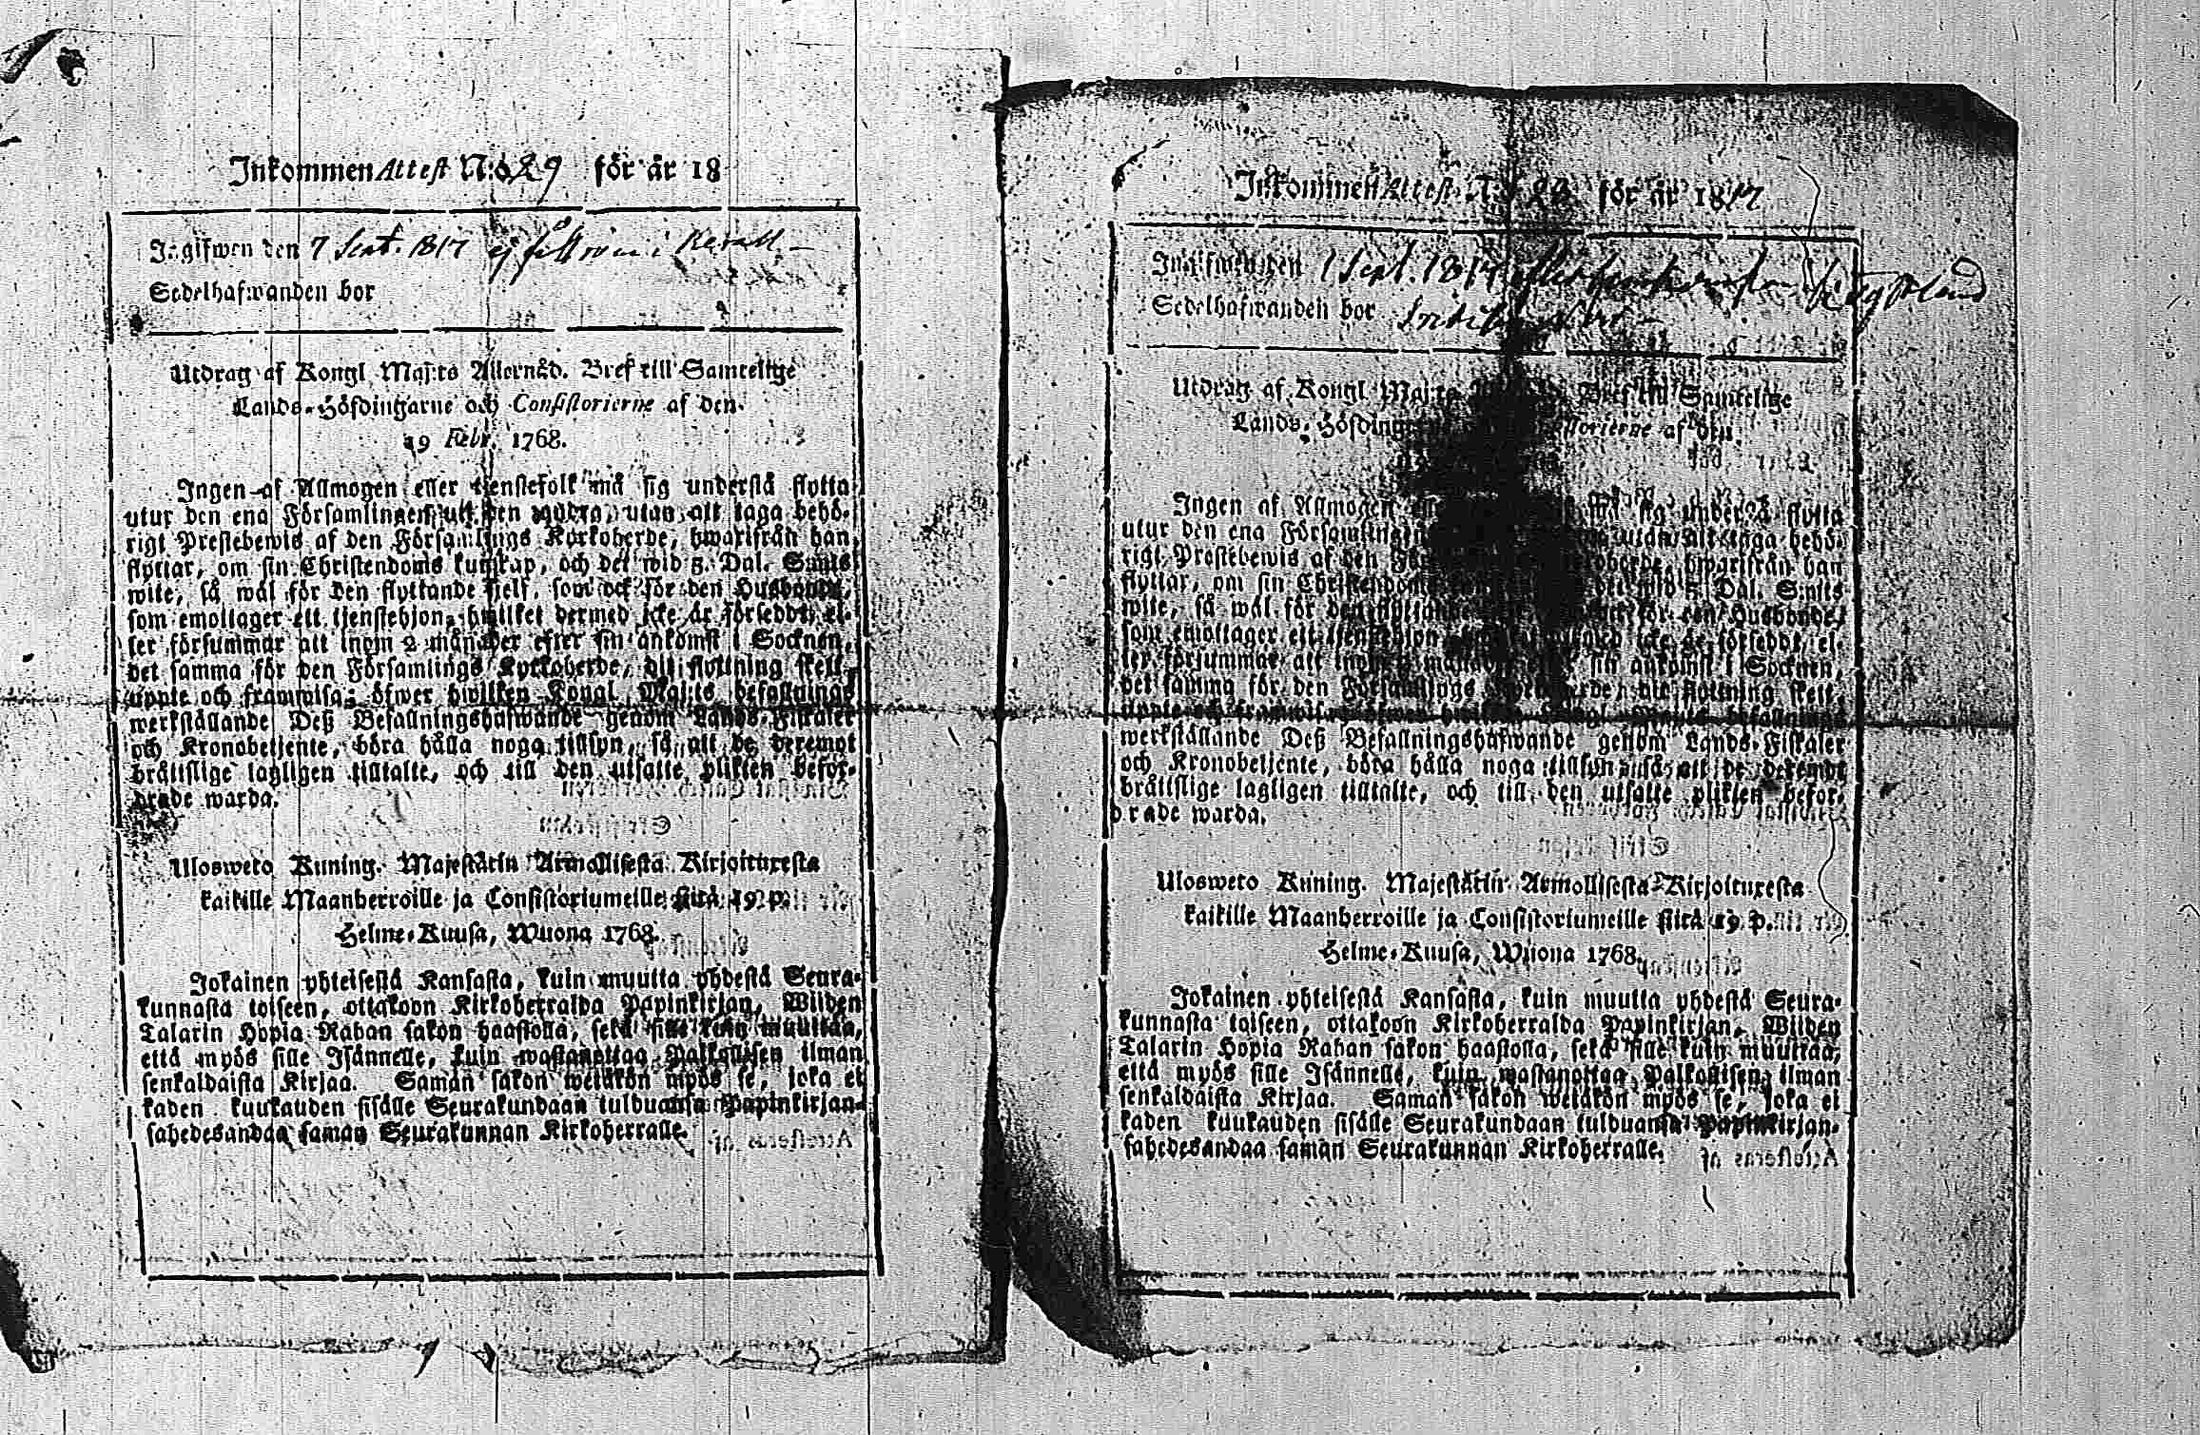 Inkommen Attest N:o 29 för år 18
Ingifwen den 7 Sept. 1817 ej
Sedelhafwanden bor
Utdrag af Kongl. Maj:ts Allernåd. Bref till Samtelige
Lands-Höfdingarne och Consistorierne af den
19 Febr. 1768.
Ingen af Allmogen eller tjenstefolk må sig understå flytta
utur den ena Församlingen uti den andra, utan att taga behö-
rigt Prestebewis af den Församlings Kyrkoherde, hwarifrån han
flyttar, om sin Christendoms kunskap, och det wid 5. Dal. S:mts
wite, så wäl för den flyttande sjelf, som ock för den Husbonde,
som emottager ett tjenstehjon, hwilket dermed icke är försedbt, el-
ler försummar att inom 2 månader efter sin ankomst i Socknen,
det samma för den Församlings Kyrkoherde, dit flyttning skett,
uppte och framwisa; öfwer hwilken Kongl. Maj:ts befallnings
werkställande Deß Befallningshafwande genom Lands-Fiskaler
och Kronobetjente, böra hålla noga tillsyn, så att de deremot
bråttslige lagligen tilltalte, och till den utsatte plikten befor-
drade warda.
Ulosweto Kuning. Majestätin Armollisesta Kirjoituxesta
kaikille Maanherroille ja Consistoriumeille siitä 19 p.
Helme-Kuusa, Wuona 1768.
Jokainen yhteisestä Kansasta, kuin muutta yhdestä Seura-
kunnasta toiseen, ottakoon Kirkoherralda Papinkirjan, Wiiden
Talarin Hopia Rahan sakon haastolla, sekä sille kuin muuttaa,
että myös sille Isännelle, kuin wastanottaa Palkollisen ilman
senkaldaista Kirjaa. Saman sakon wetäkön myös se, joka ei
kaden kuukauden sisälle Seurakundaan tulduansa Papinkirjan-
sahedesandaa saman Seurakunnan Kirkoherralle.
Inkommen Attest för år 1817
Ingifwen den 1 Sept. 1817
Sedelhafwanden bor
Utdrag af Kongl. Maj:ts Bref till Samtelige
Lands-Höfdingarne af den
Ingen af Allmogen må sig understå flytta
utur den ena Församlingen utan att taga behö-
rigt Prestebewis af den hwarifrån han
flyttar, om sin Christendoms det wid 5. Dal. S:mts
wite, så wäl för den flyttande för den Husbonde,
som emottager ett tjenstehjon, icke är försedbt, el-
ler försummar att inom 2 månader sin ankomst i Socknen,
det samma för den Församlings dit flyttning skett,
uppte och framwisa; öfwer hwilken Kongl. Maj:ts befallnings
werkställande Deß Befallningshafwande genom Lands-Fiskaler
och Kronobetjente, böra hålla noga tillsyn, så att de deremot
bråttslige lagligen tilltalte, och till den utsatte plikten befor-
drade warda.
Ulosweto Kuning. Majestätin Armollisesta Kirjoituxesta
kaikille Maanherroille ja Consistoriumeille siitä 19 p.
Helme-Kuusa, Wuona 1768.
Jokainen yhteisestä Kansasta, kuin muutta yhdestä Seura-
kunnasta toiseen, ottakoon Kirkoherralda Papinkirjan, Wiiden
Talarin Hopia Rahan sakon haastolla, sekä sille kuin muuttaa,
että myös sille Isännelle, kuin wastanottaa Palkollisen ilman
senkaldaista Kirjaa. Saman sakon wetäkön myös se, joka ei
kaden kuukauden sisälle Seurakundaan tulduansa Papinkirjan-
sahedesandaa saman Seurakunnan Kirkoherralle.